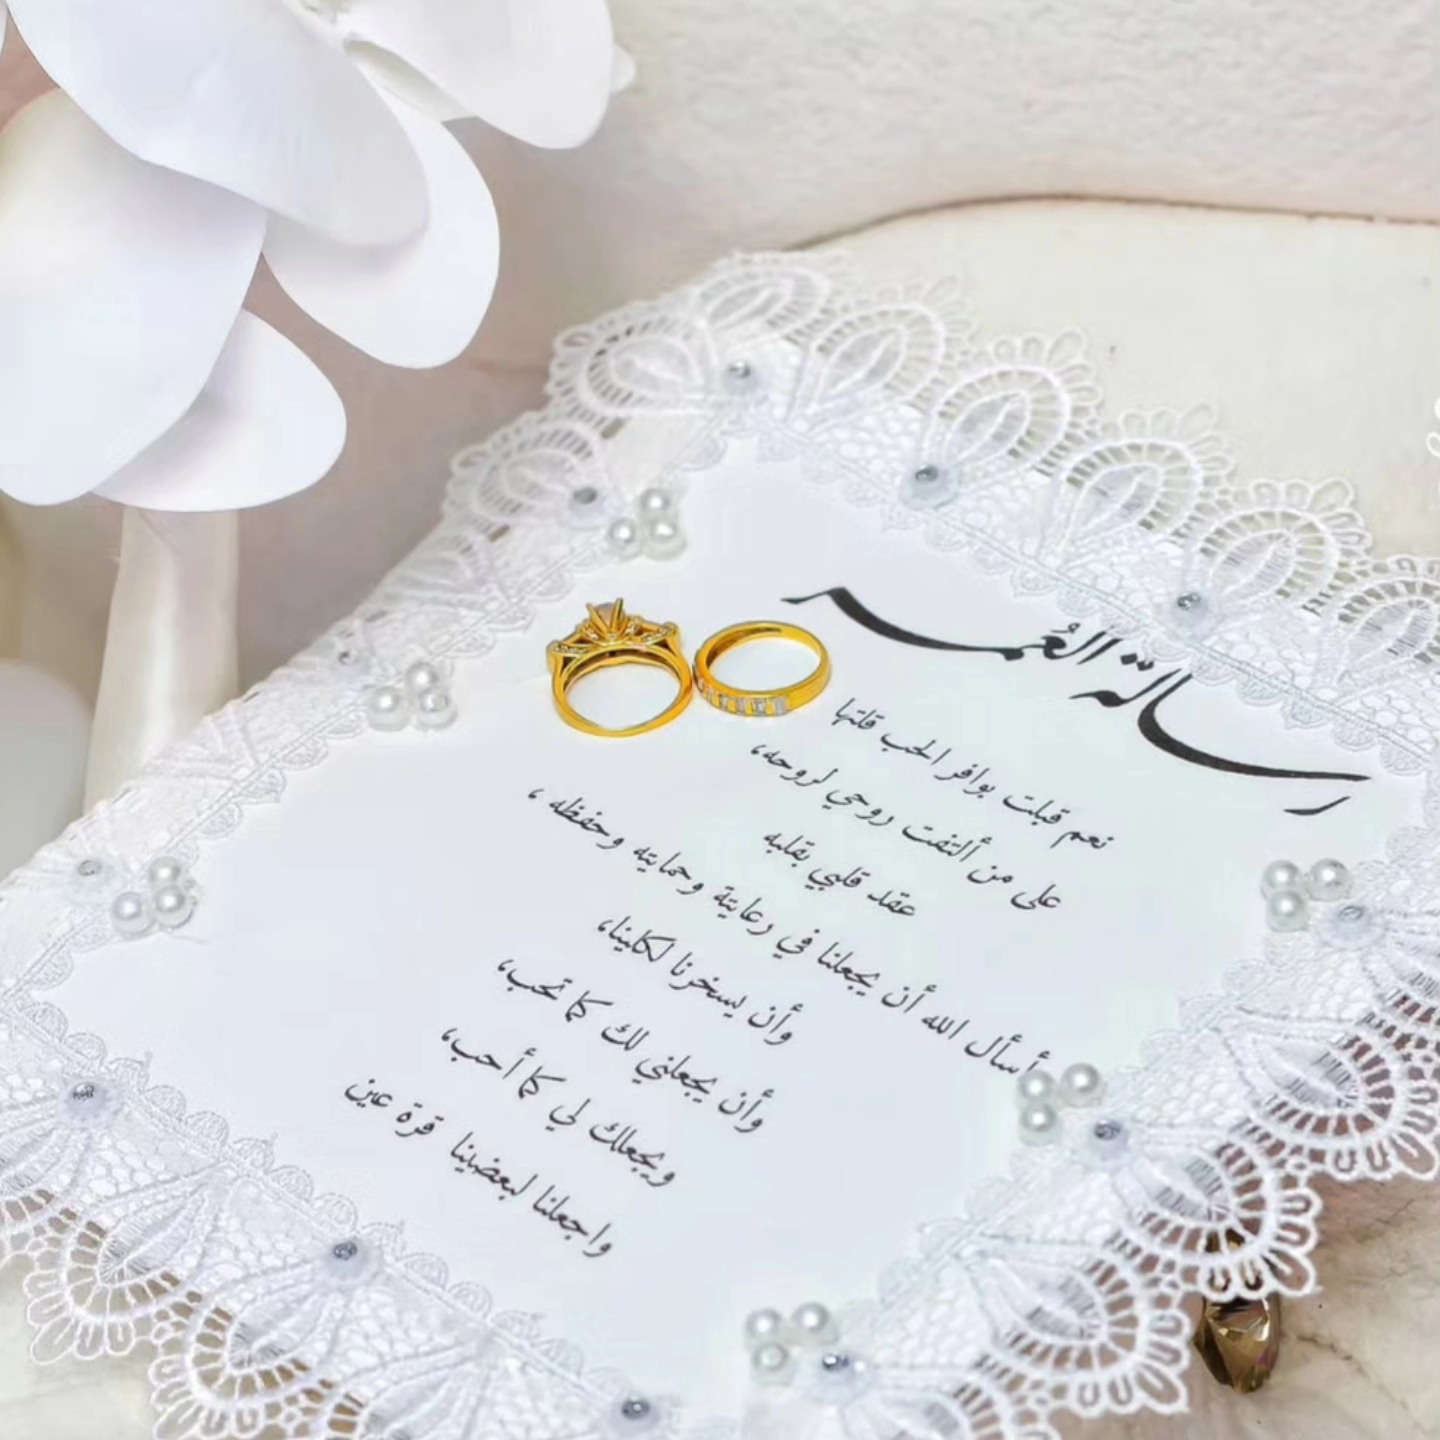 رسالة العُمـر
نعم قبلت بوافر الحب قلتها
على من ألتفت روحي لروحه،
عقد قلبي بقلبه
أسأل الله أن يجعلنا في رعايتة وحمايته وحفظه ،
وأن يسخرنا لكلينا،
وأن يجعلني لك كما تحب،
ويجعلك لي كما أحب،
واجعلنا لبعضينا قرة عين